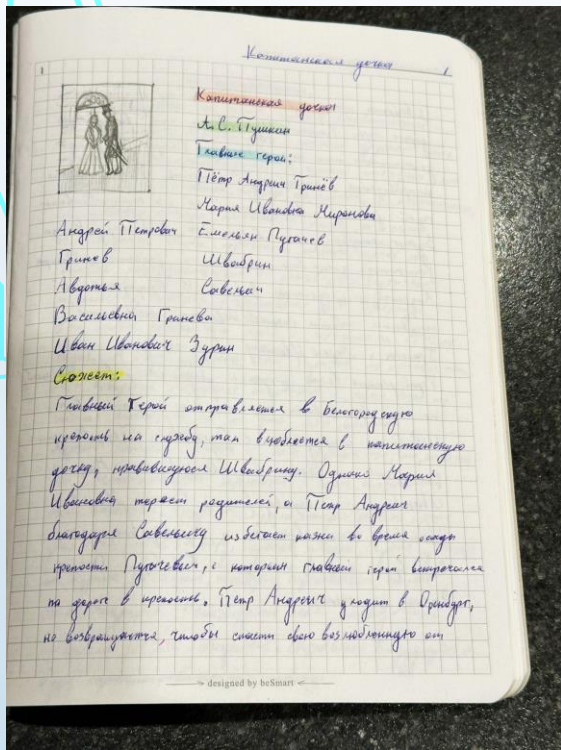 Капитанская дочка 1
Капитанская дочка
А.С. Пушкин
Главные герои:
Пётр Андреич Гринёв
Мария Ивановна Миронова
Андрей Петрович Емельян Пугачев
Гринев Швабрин
Авдотья Савельич
Васильевна Гринева
Иван Иванович Зурин
Сюжет:
Главный Герой отправляется в Белогородскую
крепость на службу, там влюбляется в капитанскую
дочку, нравившуюся Швабрину. Однако Мария
Ивановна теряет родителей, а Петр Андреич
благодаря Савельичу избегает казни во время осады
крепости Пугачевым, с которым главный герой встречался
по дороге в крепость. Петр Андреич уходит в Оренбург,
но возвращается, чтобы спасти свою возлюбленную от
designed by beSmart